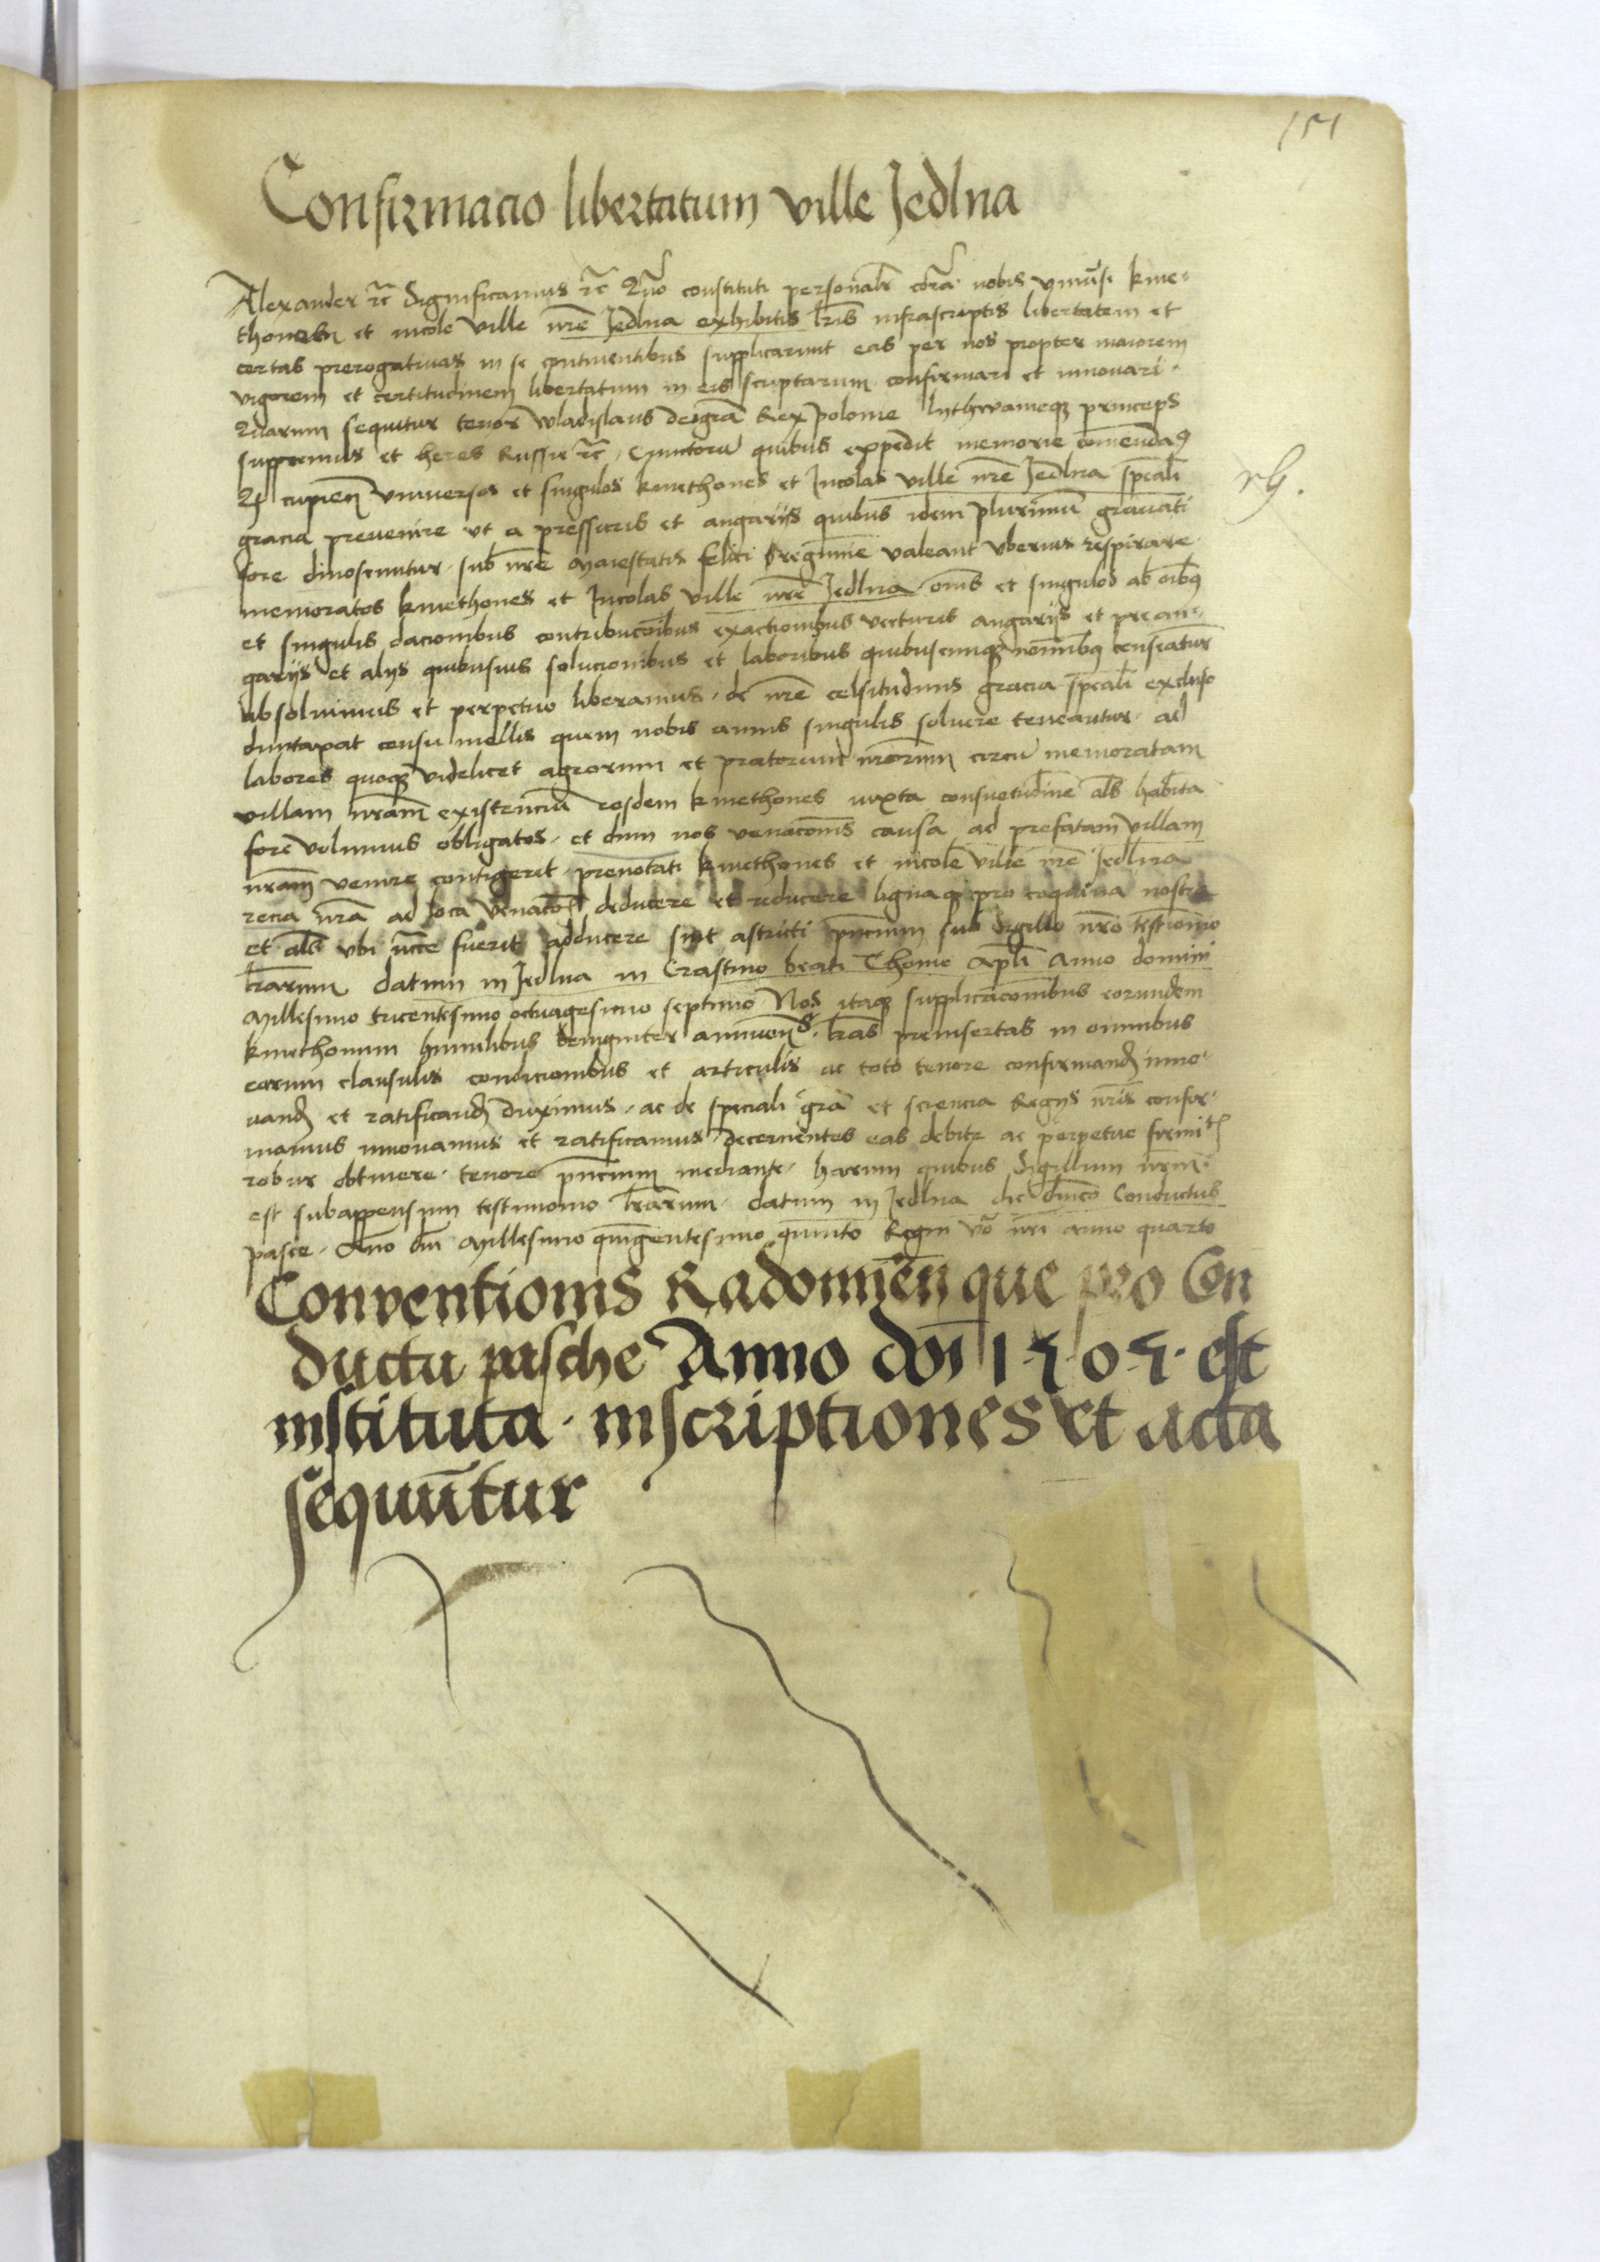 151
Confirmacio libertatum ville Jedlna
Alexander etc Significamus etc Quō constituti personalr̄ corā nobis vniūsi kme-
thones et incole ville nr̄e Jedlna exhibitis lr̄is infrascriptis libertatem et
certas prerogatiuas in se continentibus supplicarunt eas per nos propter maiorem
vigorem et certitudinem libertatum in eis scriptarum confirmari et innouari.
Quarum sequitur tenor Wladislaus dei grā Rex polonie lythwanieqꝫ princeps
suppremus et heres Russie etc. Cunctorū quibus expedit memorie comēdaꝰ
cupien̄ vniuersos et singulos kmethones et Incolas ville nr̄e Jedlna spēali
gracia preuenire vt a pressuris et angarijs quibus idem plurimū grauati
fore dinoscuntur. sub nr̄e Maiestatis felici regimīe valeant vberius respirare.
memoratos kmethones et Incolas ville nr̄e Jedlna. om̄s et singulos ab oībꝰ
et singulis dacionibus contribucoībus exactionibus vecturis angarijs et prean-
garijs et alijs quibusuis solucionibus et laboribus quibuscunqꝫ nomībꝰ censeātur
absoluimus et perpetuo liberamus. de nr̄e celsitudinis gracia spēali excluso
duntaxat censu mellis quem nobis annis singulis soluere teneantur. ad
labores quoqꝫ videlicet agrorum et pratorum nr̄orum circa memoratam
villam nr̄am existenciū eosdem kmethones iuxta consuetudīne als̄ habita
fore volumus obligatos. et dum nos venacōnis causa ad prefatam villam
nr̄am venire contigerit. prenotati kmethones et incole ville nr̄e Jedlna
recia nr̄a ad loca venacōis deducere et reducere lignaqꝫ pro coquina nostra
et als̄ vbi nc̄ce fuerit adducere sint astricti pn̄cium sub Sigillo nr̄o testimonio
lr̄arum datum in Jedlna in Crastino beati Thome apl̄i Anno domini
Millesimo tricentesimo octuagesimo septimo Nos itaqꝫ supplicacōnibus eorundem
kmethonum humilibus benigniter annuen̄. lr̄as preinsertas in omnibus
earum clausulis condicionibus et articulis ac toto tenore confirmand̄ inno-
uand̄ et ratificand̄ duximus. ac de speciali grā et sciencia Regijs nr̄is confir-
mamus innouamus et ratificamus. decernentes eas debite ac perpetue firmit̄
robur obtinere. tenore pn̄cium mediante. harum quibus Sigillum nr̄m.
est subappensum testimonio lr̄arum. datum in Jedlna die dn̄ico Conductus
pasce. Ano dni Millesimo quīgentesimo quinto Regni vo nr̄i anno quarto
Conventionis Radomien̄ que pro Con
ductu pasche Anno doī 1505. est
instituta. inscriptiones et acta
sequūtur